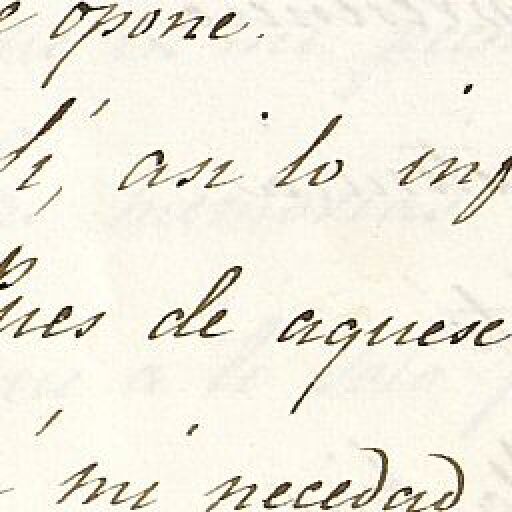 opone.
asi lo inf
ues de aquese
mi necedad